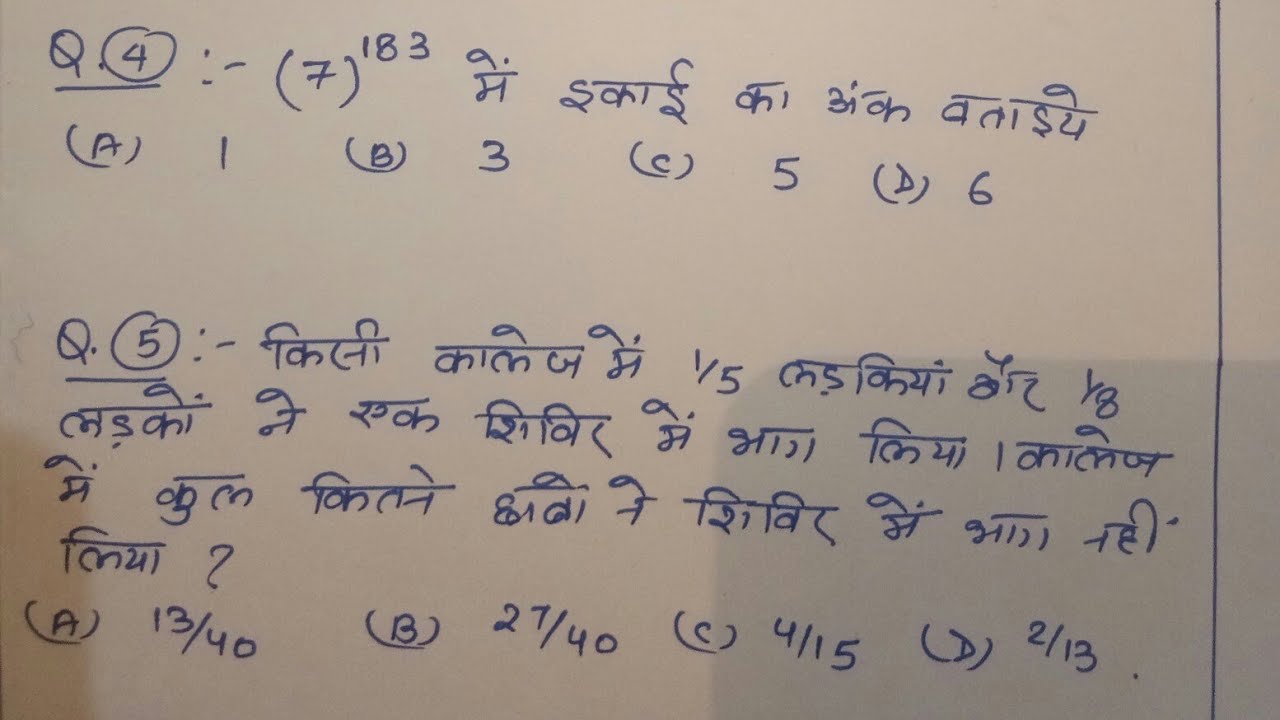 Q.4 :- (7)^183 में इकाई का अंक बताइये
(A) 1 (B) 3 (C) 5 (D) 6
Q.5 :- किसी कालेज में 1/5 लड़कियां और 1/8
लड़कों ने एक शिविर में भाग लिया । कालेज
में कुल कितने छात्रो ने शिविर में भाग नहीं
लिया ?
(A) 13/40 (B) 27/40 (C) 4/15 (D) 2/13 .